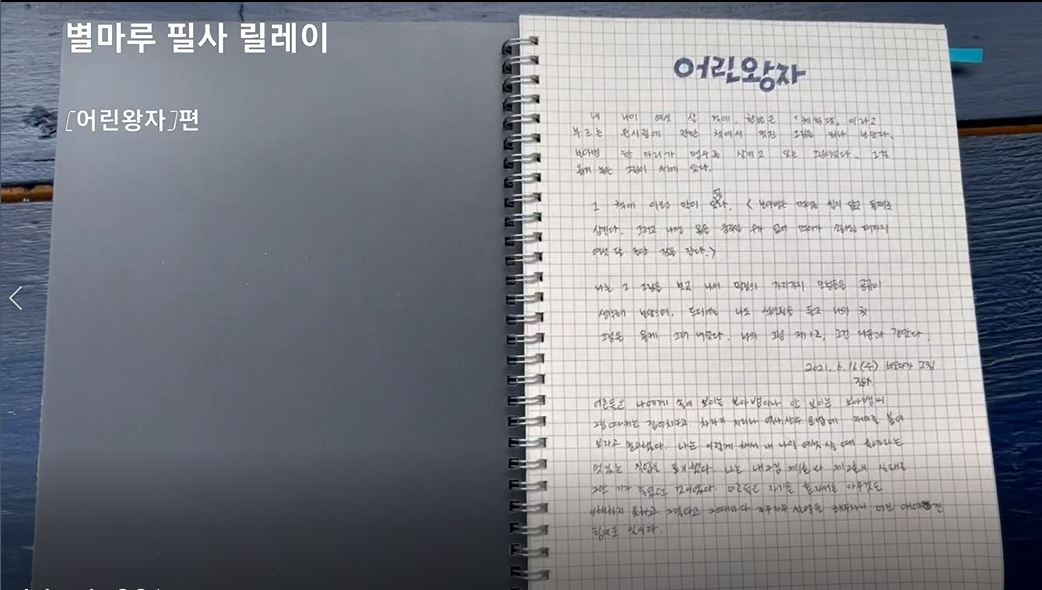 별마루 필사 릴레이
[어린왕자]편
어린왕자
내 나이 여섯 살 적에, 한번은 이라고
부르는 원시림에 관한 책에서 멋진 그림을 하나 보았다.
보아뱀 한 마리가 맹수를 삼키고 있는 그림이었다. 그걸
옮겨 놓은 그림이 위에 있다.
그 책에 이런 말이 있다. < 보아뱀은 먹이를 씹지 않고 통째로
삼킨다. 그리고 나면 몸을 움직일 수가 없어 먹이가 소화될 때까지
여섯 달 동안 잠을 잔다.>
나는 그 그림을 보고 나서 밀림의 가지가지 모험들을 곰곰이
생각해 보았으며, 드디어는 나도 색연필을 들고 나의 첫
그림을 용케 그려 내었다. 나의 그림 제1호, 그건 다음과 같았다.
2021. 6. 16 (수)
어른들은 나에게 속이 보이는 보아뱀이나 안 보이는 보아뱀의
그림 따위는 집어치우고, 차라리 지리나 역사, 산수, 문법에 재미를 붙여
보라고 충고했다. 나는 이렇게 해서 내 나이 여섯 살 때 화가라는
멋있는 직업을 포기했다. 나는 내 그림 제1호와 제2호의 실패로
그만 기가 죽었던 것이었다. 어른들은 자기들 혼자서는 아무것도
이해하지 못하고 그렇다고 그때마다 자꾸자꾸 설명을 해주자니 어린
힘드는 일이다.